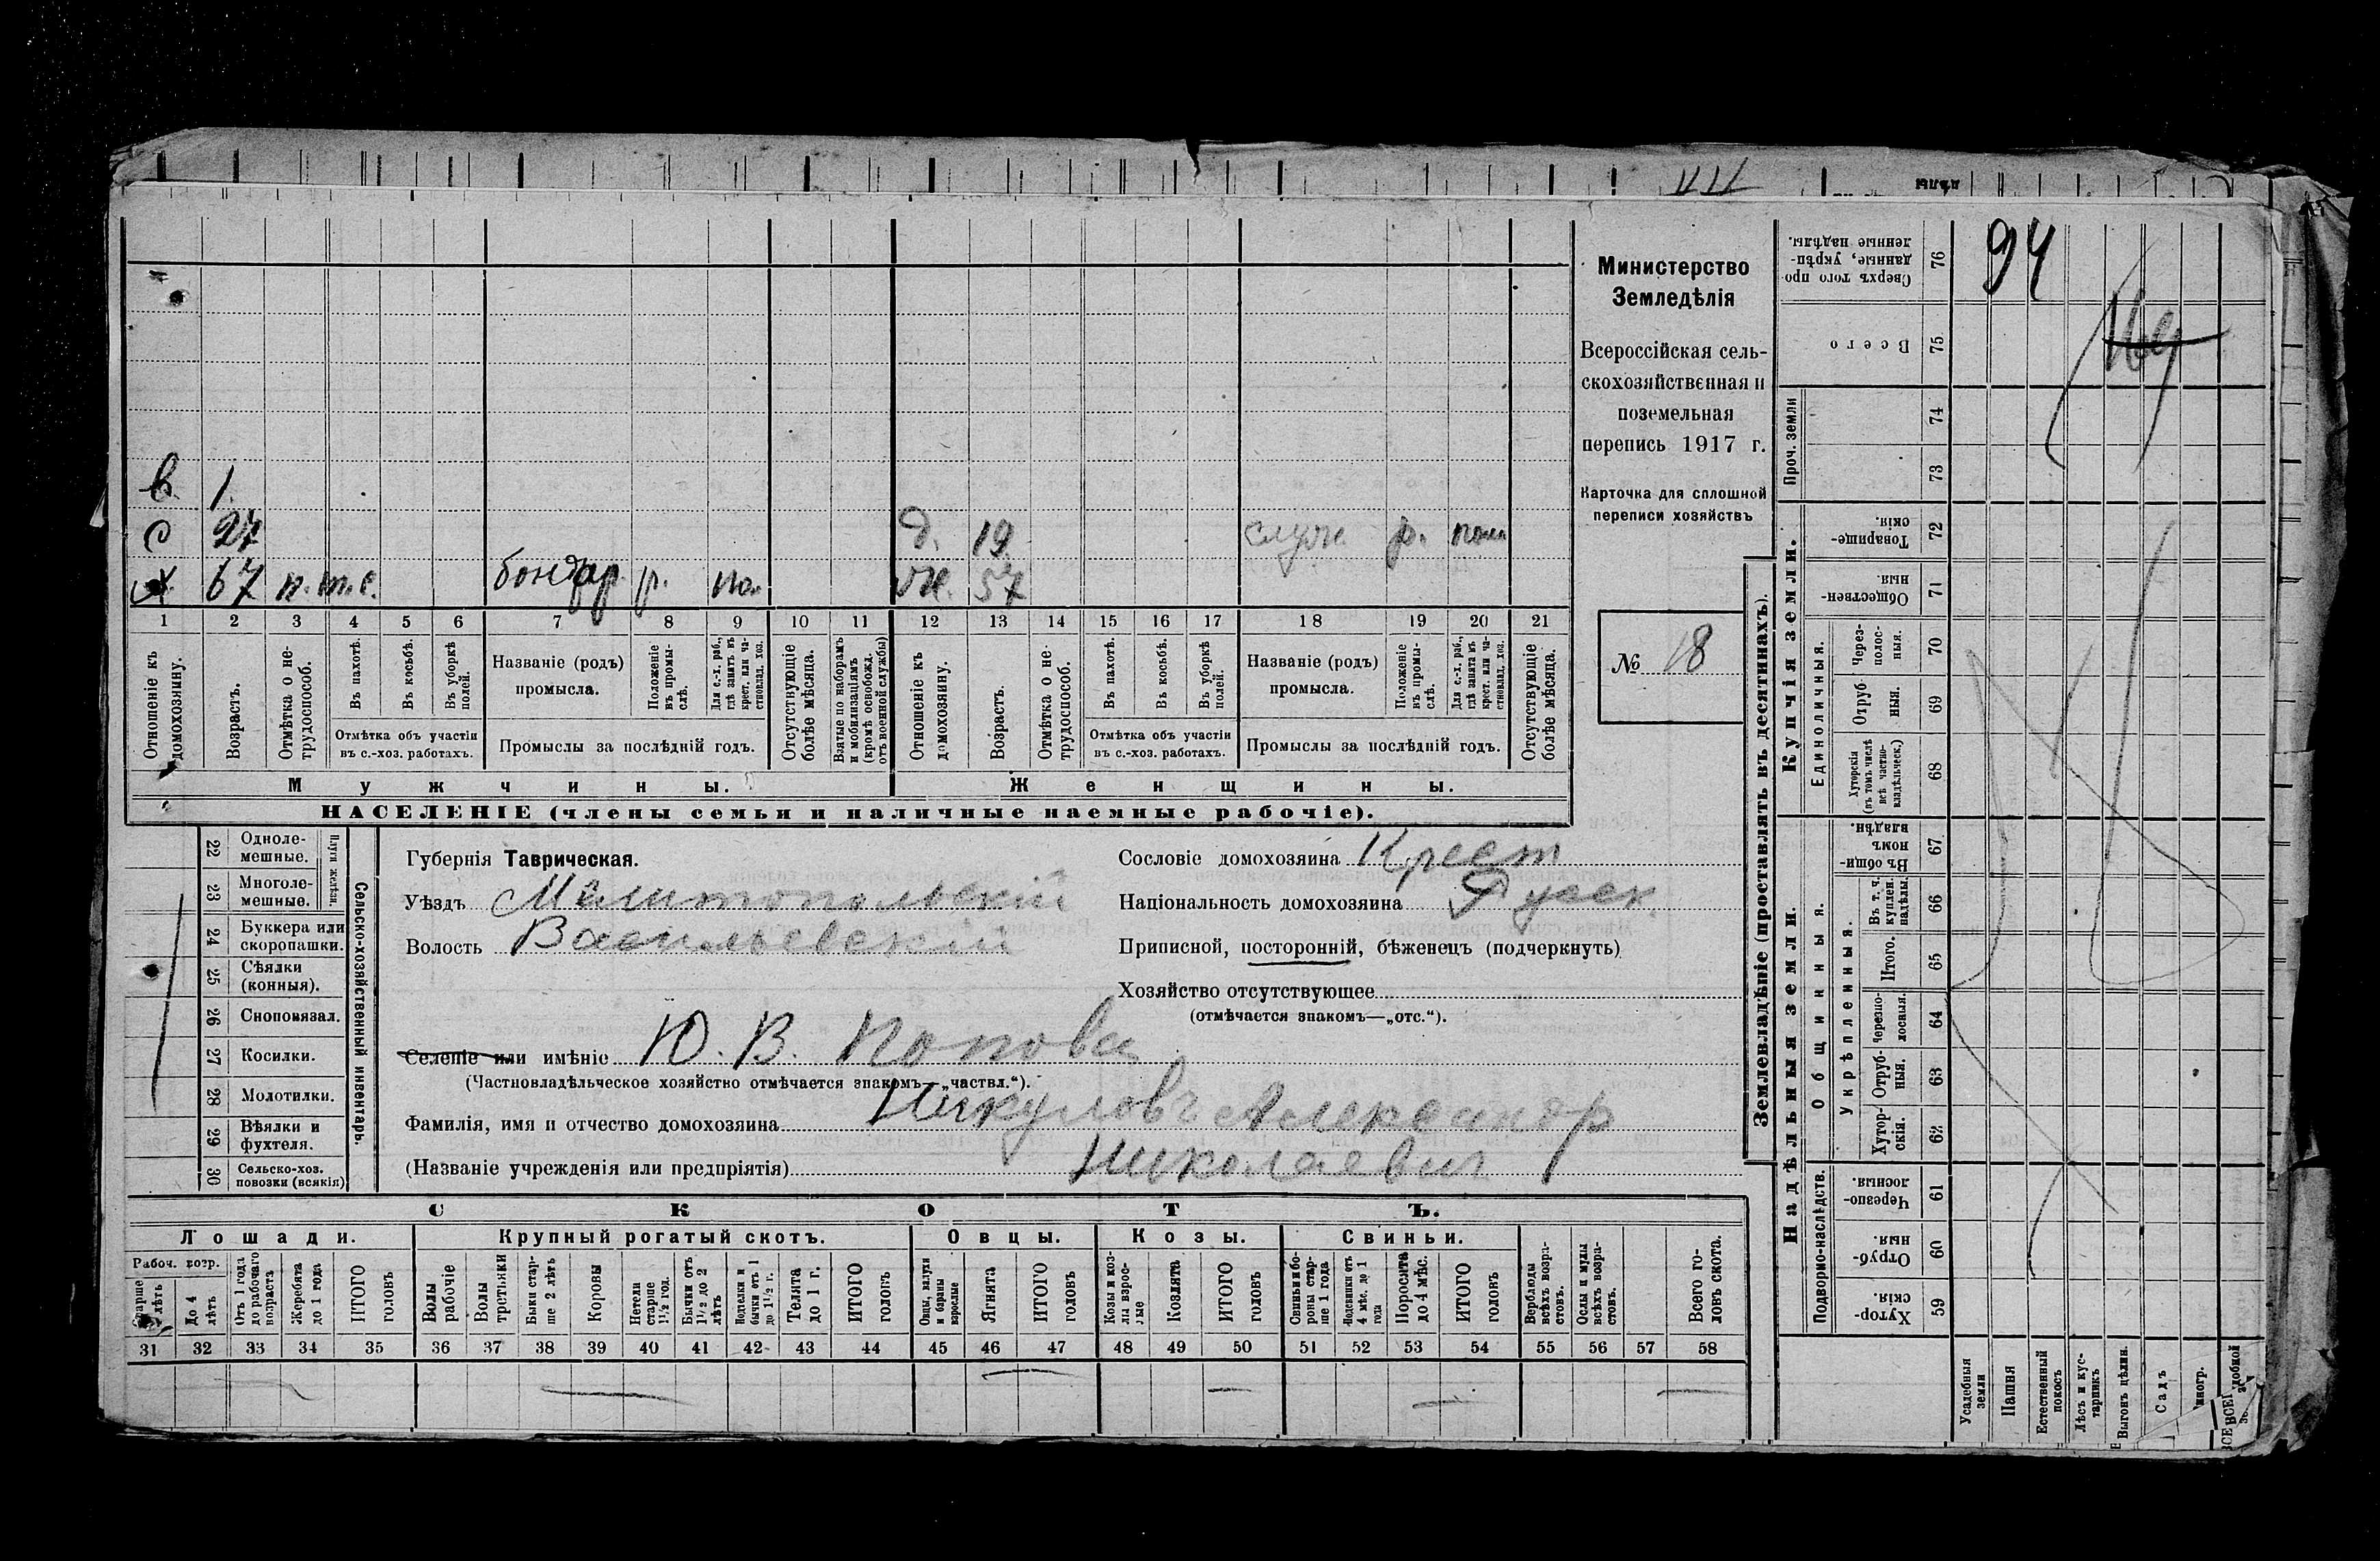 94
в. 1.
с 27 д. 19 служ. р. пом
х. 67 н. т. с. бондар р. по. ж. 57
1 2 3 4 5 6 7 8 9 10 11 12 13 14 15 16 17 18 19 20 21
Отношеніе къ домохозяину.
Возрастъ.
Отмѣтка о не-трудоспособ.
Въ пахотѣ.
Въ косьбѣ.
Въ уборкѣ полей.
Отмѣтка объ участіи
въ с.-хоз. работахъ.
Названіе (родъ)
промысла.
Положеніе въ промы-слѣ.
Для с.-х. раб., гдѣ занятъ въ крест. или ча-стновлад. хоз.
Промыслы за послѣдній годъ.
Отсутствующіе болѣе мѣсяца.
Взятые по наборамъ и мобилизаціямъ (кромѣ освобожд. отъ военной службы)
Отношеніе къ домохозяину.
Возрастъ.
Отмѣтка о не-трудоспособ.
Въ пахотѣ.
Въ косьбѣ.
Въ уборкѣ полей.
Отмѣтка объ участіи
въ с.-хоз. работахъ.
Названіе (родъ)
промысла.
Положеніе въ промы-слѣ.
Для с.-х. раб., гдѣ занята въ крест. или ча-стновлад. хоз.
Промыслы за послѣдній годъ.
Отсутствующіе болѣе мѣсяца.
Мужчины. Женщины.
НАСЕЛЕНІЕ (члены семьи и наличные наемные рабочіе).
Министерство
Земледѣлія
Всероссійская сель-
скохозяйственная и
поземельная
перепись 1917 г.
Карточка для сплошной
переписи хозяйствъ
№ 18
22 Одноле-мешные.
23 Многоле-мешные.
Плуги желѣзн.
24 Буккера или скоропашки.
25 Сѣялки (конныя).
26 Сноповязал.
27 Косилки.
28 Молотилки.
29 Вѣялки и фухтеля.
30 Сельско-хоз. повозки (всякія)
Сельско-хозяйственный инвентарь.
Губернія Таврическая.
Уѣздъ Мелитопольскій
Волость Васильевскій
Сословіе домохозяина Крест
Національность домохозяина Русск.
Приписной, посторонній, бѣженецъ (подчеркнуть)
Хозяйство отсутствующее
(отмѣчается знакомъ—„отс.“).
Селеніе или имѣніе Ю. В. Попова
(Частновладѣльческое хозяйство отмѣчается знакомъ—„частвл.“).
Фамилія, имя и отчество домохозяина Никуловъ Александр
(Названіе учрежденія или предпріятія) Николаевич
СКОТЪ.
Лошади. Крупный рогатый скотъ. Овцы. Козы. Свиньи.
Рабоч. возр.
Старше 4 лѣтъ
До 4 лѣтъ
Отъ 1 года до рабочаго возраста
Жеребята до 1 года
ИТОГО головъ
Волы рабочіе
Волы третьяки
Быки стар-ше 2 лѣтъ
Коровы
Нетели старше 1½ год.
Бычки отъ 1½ до 2 лѣтъ
Подтелки и бычки отъ 1 до 1½ г.
Телята до 1 г.
ИТОГО головъ
Овцы, валухи и бараны взрослые
Ягнята
ИТОГО головъ
Козы и коз-лы взрос-лые
Козлята
ИТОГО головъ
Свиньи и бо-ровы стар-ше 1 года
Подсвинки отъ 4 мѣс. до 1 года
Поросята до 4 мѣс.
ИТОГО головъ
Верблюды всѣхъ возра-стовъ.
Ослы и мулы всѣхъ возра-стовъ.
Всего го-ловъ скота.
31 32 33 34 35 36 37 38 39 40 41 42 43 44 45 46 47 48 49 50 51 52 53 54 55 56 57 58
Землевладѣніе (проставлять въ десятинахъ).
Сверхъ того про-данные, укрѣп-ленные надѣлы. 76
Всего 75
Проч. земли 74
73
Купчія земли.
Товарище-скія. 72
Обществен-ныя. 71
Единоличныя.
Через-полос-ныя. 70
Отруб-ныя. 69
Хуторскія (въ томъ числѣ всѣ частно-владѣльческ.) 68
Надѣльныя земли.
Общинныя.
Въ общи-номъ владѣн. 67
Укрѣпленныя.
Въ т. ч. куплен. надѣлы. 66
Итого. 65
Черезпо-лосныя. 64
Отруб-ныя. 63
Хутор-скія. 62
Подворно-наслѣдств.
Черезпо-лосныя. 61
Отруб-ныя. 60
Хутор-скія. 59
Усадебныя земли
Пашня
Естественный покосъ
Лѣсъ и кус-тарникъ
Выгонъ цѣлин.
Садъ